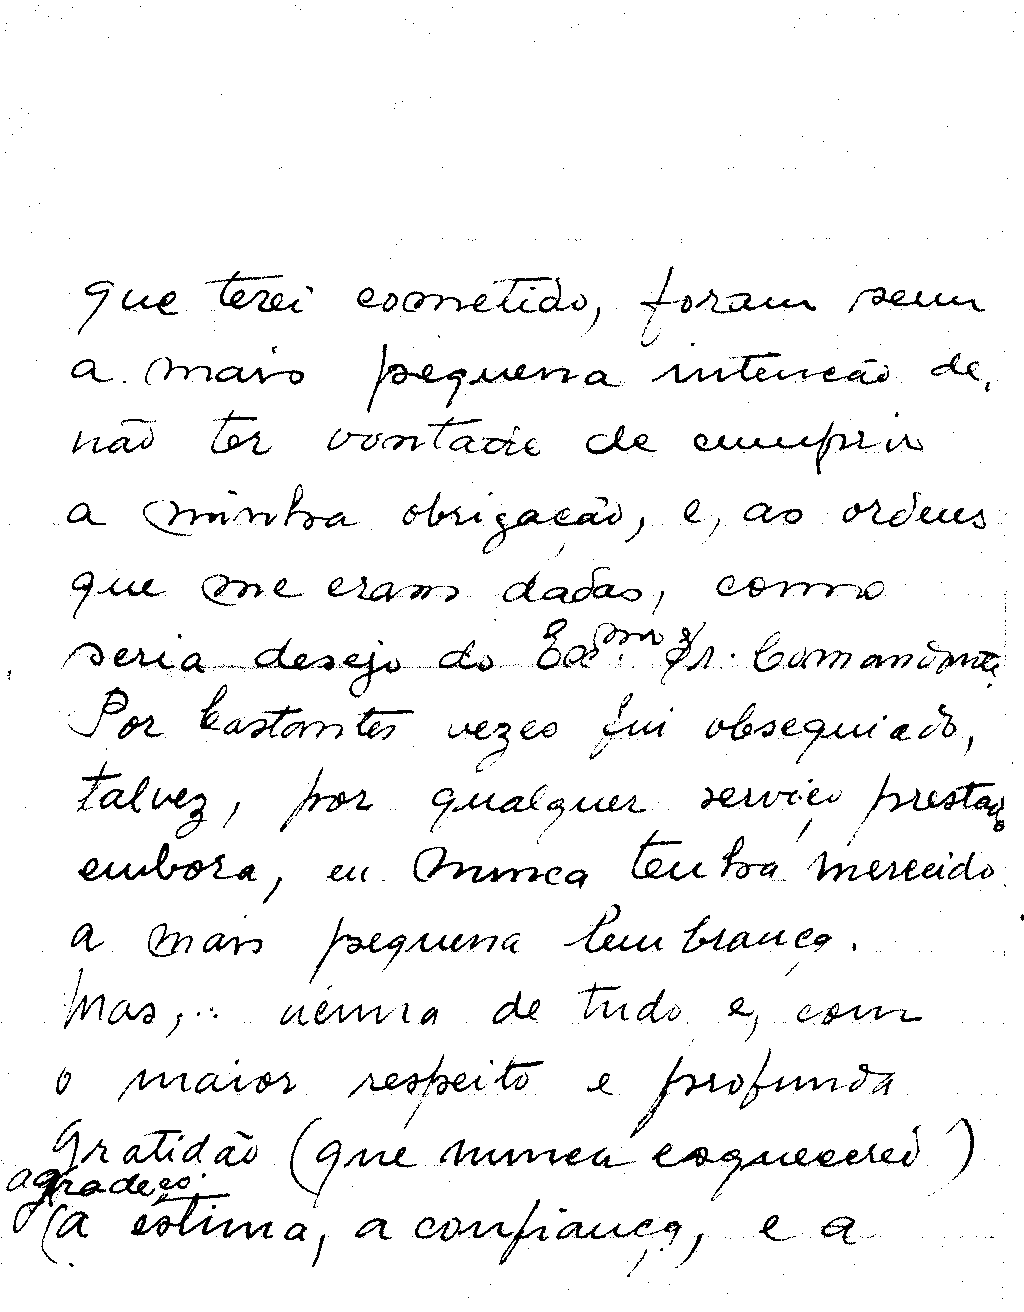 que terei cometido, foram sem
a mais pequena intenção de,
não ter vontade de cumprir
a minha obrigação, e, as ordens
que me eram dadas, como
seria desejo do Exmº. Sr. Comandante.
Por bastantes vezes fui obsequiado,
talvez, por qualquer serviço prestado
embora, eu nunca tenha merecido
a mais pequena lembrança.
Mas,.. acima de tudo e, com
o maior respeito e profunda
gratidão (que nunca esquecerei)
agradeço.
(a estima, a confiança, e a